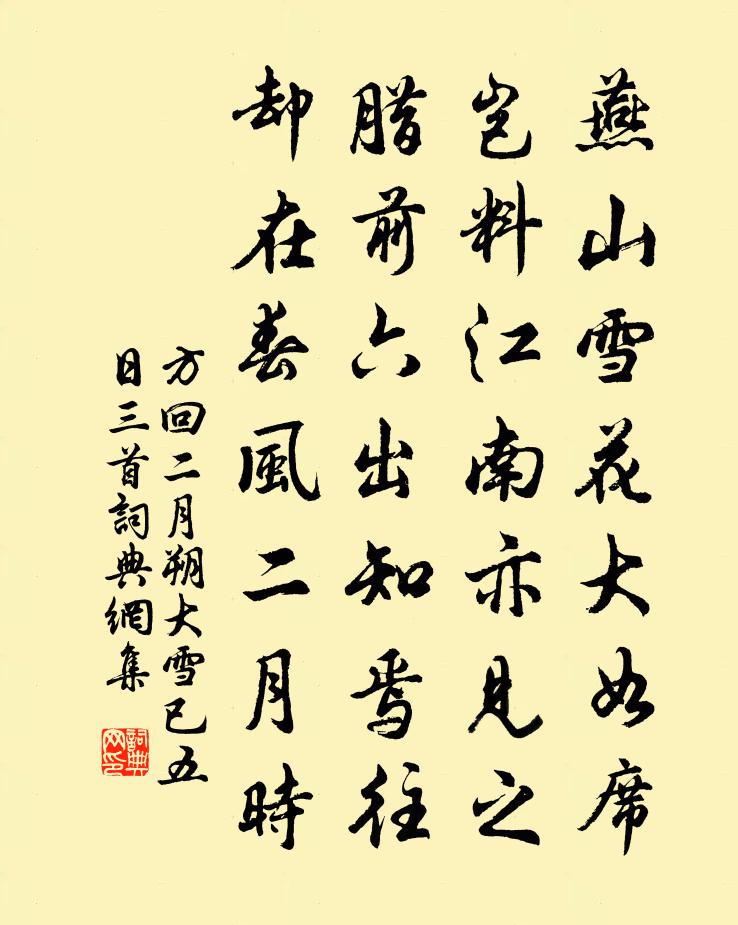 燕山雪花大如席
豈料江南亦見之
腊前六出知焉往
却在春風二月時
方回二月朔大雪已五
日三首詞典網集
詞典
网印